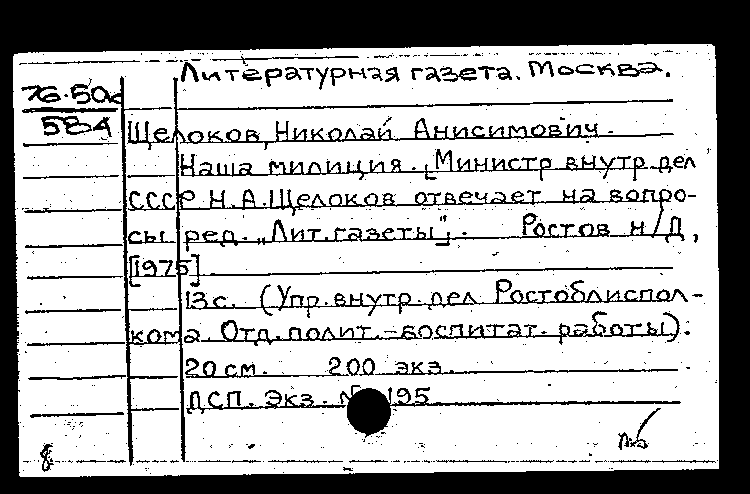 Литературная газета. Москва.
76.50с
584
Щелоков, Николай Анисимович.
Наша милиция. [Министр внутр. дел
СССР Н.А. Щелоков отвечает на вопро-
сы ред. „Лит. газеты"]. Ростов н/Д,
[1975].
13 с. (Упр. внутр. дел Ростоблиспол-
кома. Отд. полит.-воспитат. работы).
20 см. 200 экз.
ДСП. Экз. № 195